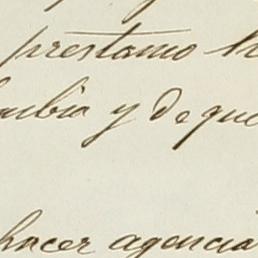 prestamo h
aubia y De que
hacer agencia